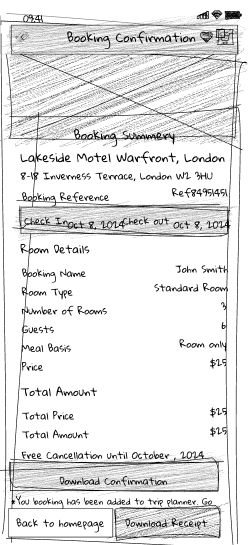 09:41
Booking Confirmation
Booking Summery
Lakeside Motel Warfront, London
8-18 Inverness Terrace, London W2 3HU
Booking Reference Ref84951451
Check In Oct 8, 2024 Check out Oct 8, 2024
Room Details
Booking Name John Smith
Room Type Standard Room
Number of Rooms 3
Guests 6
Meal Basis Room only
Price $25
Total Amount
Total Price $25
Total Amount $25
Free Cancellation until October , 2024
Download Confirmation
*You booking has been added to trip planner. Go
Back to homepage Download Receipt